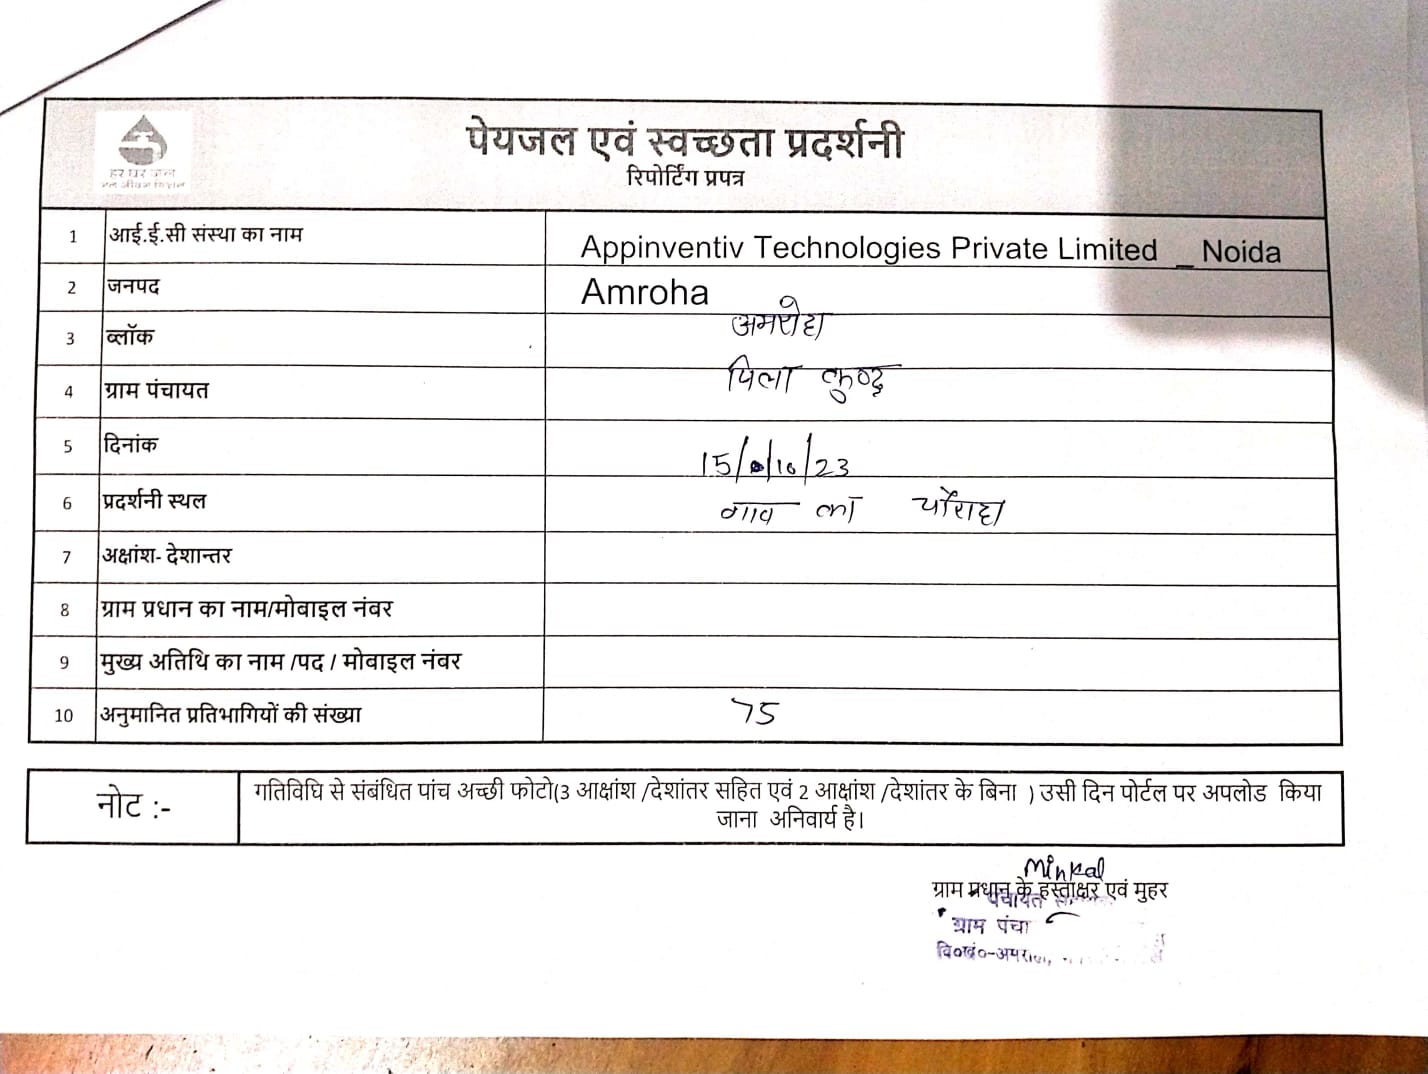 हर घर जल
जल जीवन मिशन
पेयजल एवं स्वच्छता प्रदर्शनी
रिपोर्टिंग प्रपत्र
1 आई.ई.सी संस्था का नाम Appinventiv Technologies Private Limited _ Noida
2 जनपद Amroha
3 ब्लॉक अमरोहा
4 ग्राम पंचायत पिला कुण्ड
5 दिनांक 15/10/23
6 प्रदर्शनी स्थल गाव का चौराहा
7 अक्षांश- देशान्तर
8 ग्राम प्रधान का नाम/मोबाइल नंबर
9 मुख्य अतिथि का नाम /पद / मोबाइल नंबर
10 अनुमानित प्रतिभागियों की संख्या 75
नोट :- गतिविधि से संबंधित पांच अच्छी फोटो(3 आक्षांश /देशांतर सहित एवं 2 आक्षांश /देशांतर के बिना ) उसी दिन पोर्टल पर अपलोड किया
जाना अनिवार्य है।
Minkal
ग्राम प्रधान के हस्ताक्षर एवं मुहर
पंचायत
ग्राम पंचा
वि०खं०-अमरोहा,